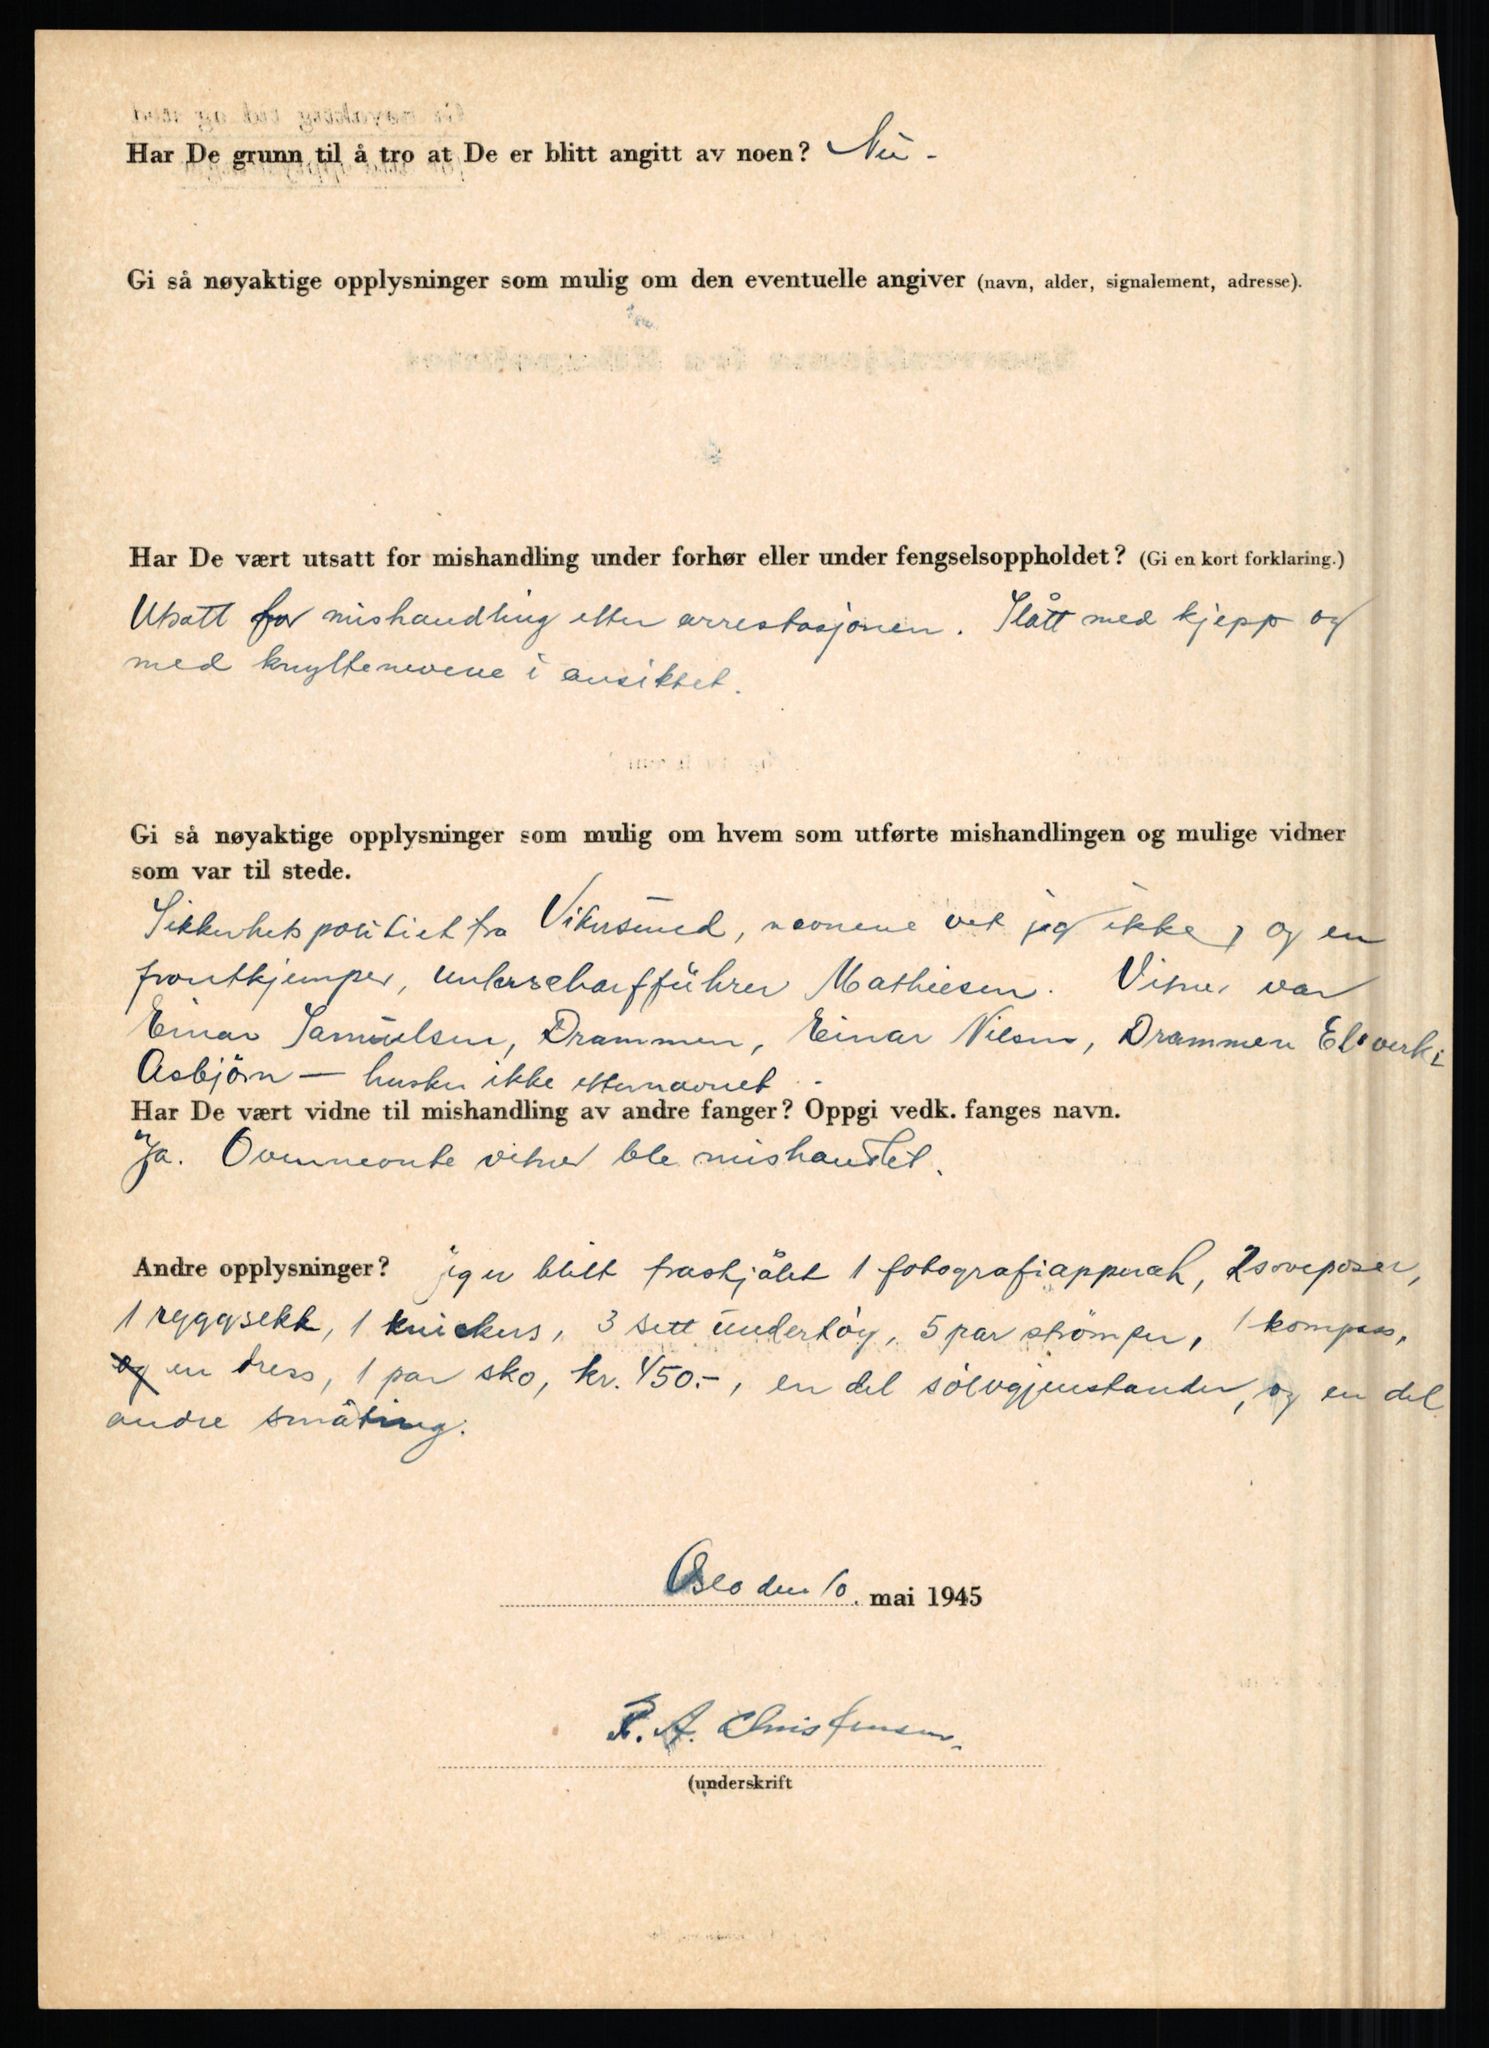 Har De grunn til å tro at De er blitt angitt av noen? Nei -
Gi så nøyaktige opplysninger som mulig om den eventuelle angiver (navn, alder, signalement, adresse).
Har De vært utsatt for mishandling under forhør eller under fengselsoppholdet? (Gi en kort forklaring.)
Utsatt for mishandling etter arrestasjonen. Slått med kjepp og
med knyttenevene i ansiktet.
Gi så nøyaktige opplysninger som mulig om hvem som utførte mishandlingen og mulige vidner
som var til stede.
Sikkerhetspolitiet fra Vikersund, navnene vet jeg ikke, og en
frontkjemper, unterscharfführer Mathiesen. Vitner var
Einar Samuelsen, Drammen, Einar Nilsen, Drammen El.verk
Asbjørn — husker ikke etternavnet.
Har De vært vidne til mishandling av andre fanger? Oppgi vedk. fanges navn.
Ja. Ovennevnte vitner ble mishandlet.
Andre opplysninger? jeg er blitt frastjålet 1 fotografiapparat, 2 soveposer,
1 ryggsekk, 1 knickers, 3 sett undertøy, 5 par strømper, 1 kompass,
og en dress, 1 par sko, kr. 450.-, en del sølvgjenstander, og en del
andre småting.
Oslo den 10. mai 1945
A. Christensen.
(underskrift